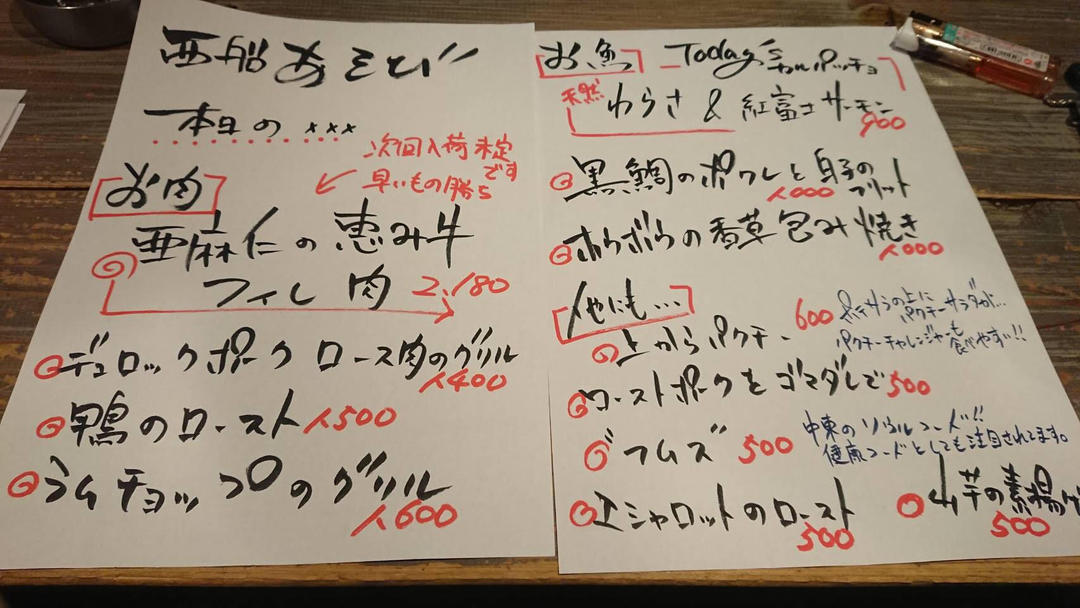 西船あそび
本日の ×××
次回入荷未定です
早いもの勝ち
お肉
亜麻仁の恵み牛
フィレ肉 2.180
デュロックポーク ロース肉のグリル
1400
鴨のロースト 1500
ラムチョップのグリル
1600
お魚 Today's カルパッチョ
天然 わらさ & 紅富士サーモン
900
黒鯛のポワレと白子のフリット
1000
ホウボウの香草包み焼き
1000
他にも...
上からパクチー 600
ポテサラの上にパクチーサラダが...
パクチーチャレンジャーも食べやすい!!
ローストポークをゴマダレで 500
フムズ 500
中東のソウルフード!!
健康フードとしても注目されてます。
エシャロットのロースト
500
山芋の素揚げ
500